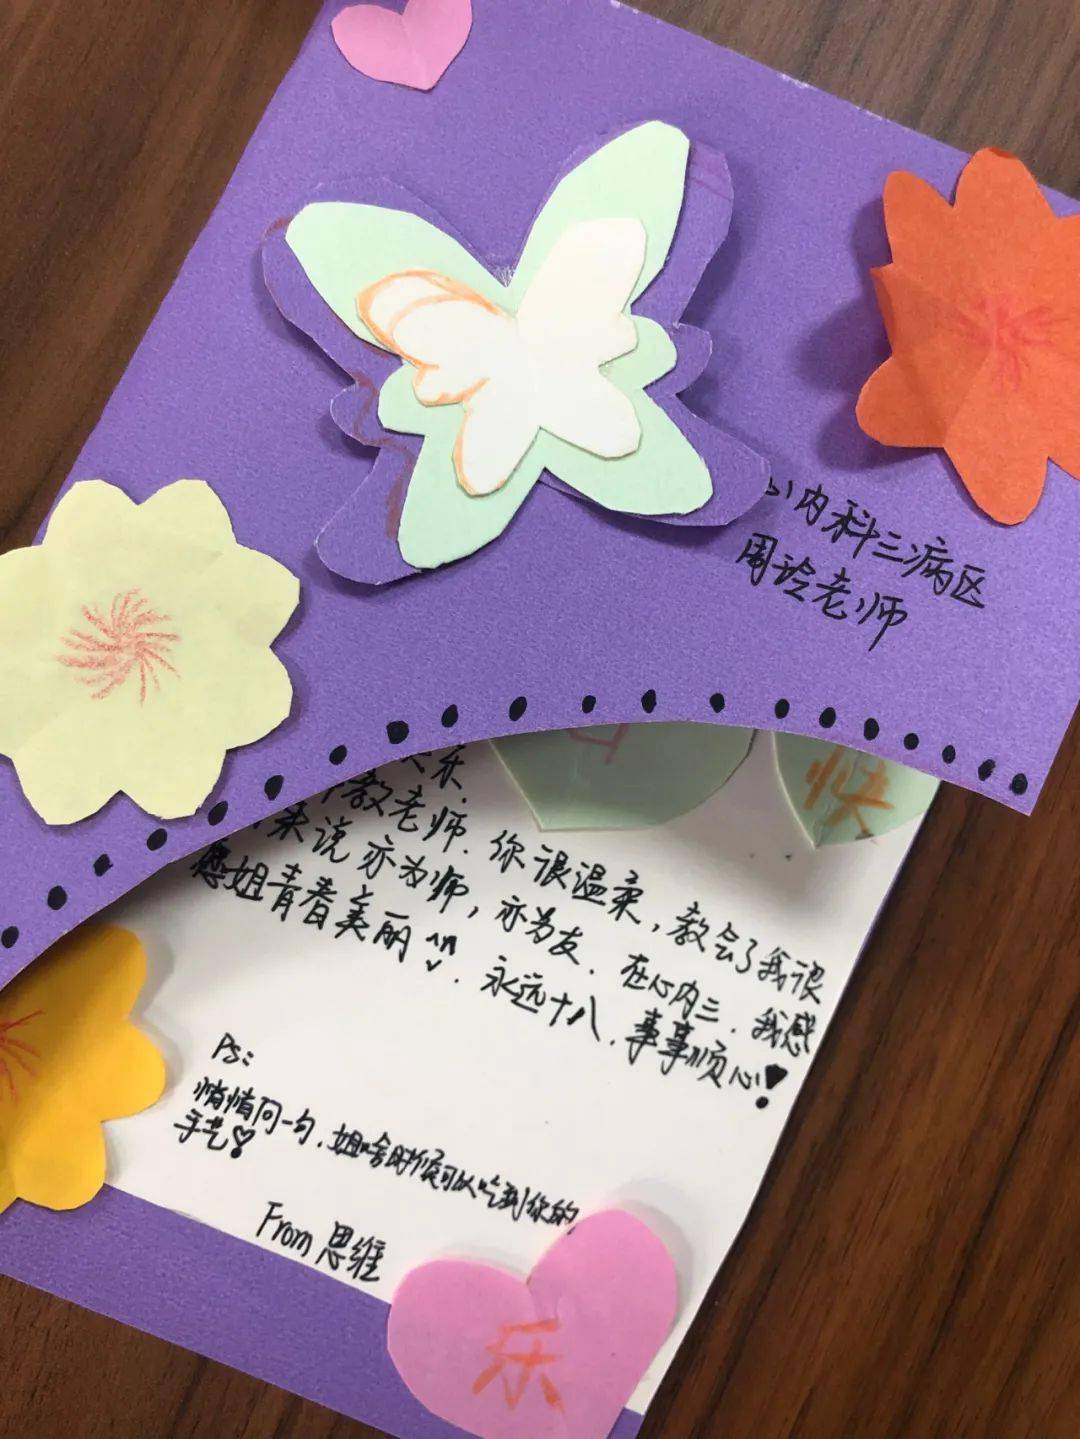 心内科三病区
周玲老师
快
乐.
教老师. 你很温柔, 教会了我很
来说亦为师, 亦为友. 在心内三. 我感
姐青春美丽^^. 永远十八. 事事顺心!
Ps:
悄悄问一句. 姐啥时候可以吃到你的
手艺!
From 思维
乐